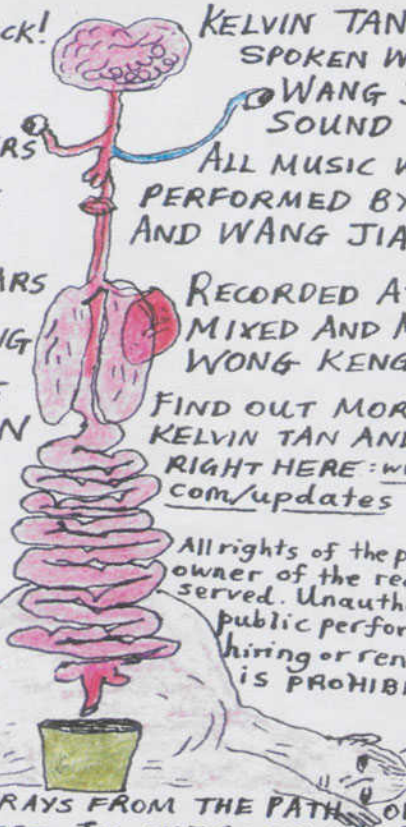 CK!
KELVIN TAN
SPOKEN W
WANG J
SOUND
RS
ALL MUSIC W
PERFORMED BY
AND WANG JIA
ARS
RECORDED A
NG
MIXED AND M
WONG KENG
FIND OUT MOR
N
KELVIN TAN AND
RIGHT HERE: w
com/updates
All rights of the p
owner of the re
served. Unauth
public perfor
hiring or ren
is PROHIBI
RAYS FROM THE PATH O